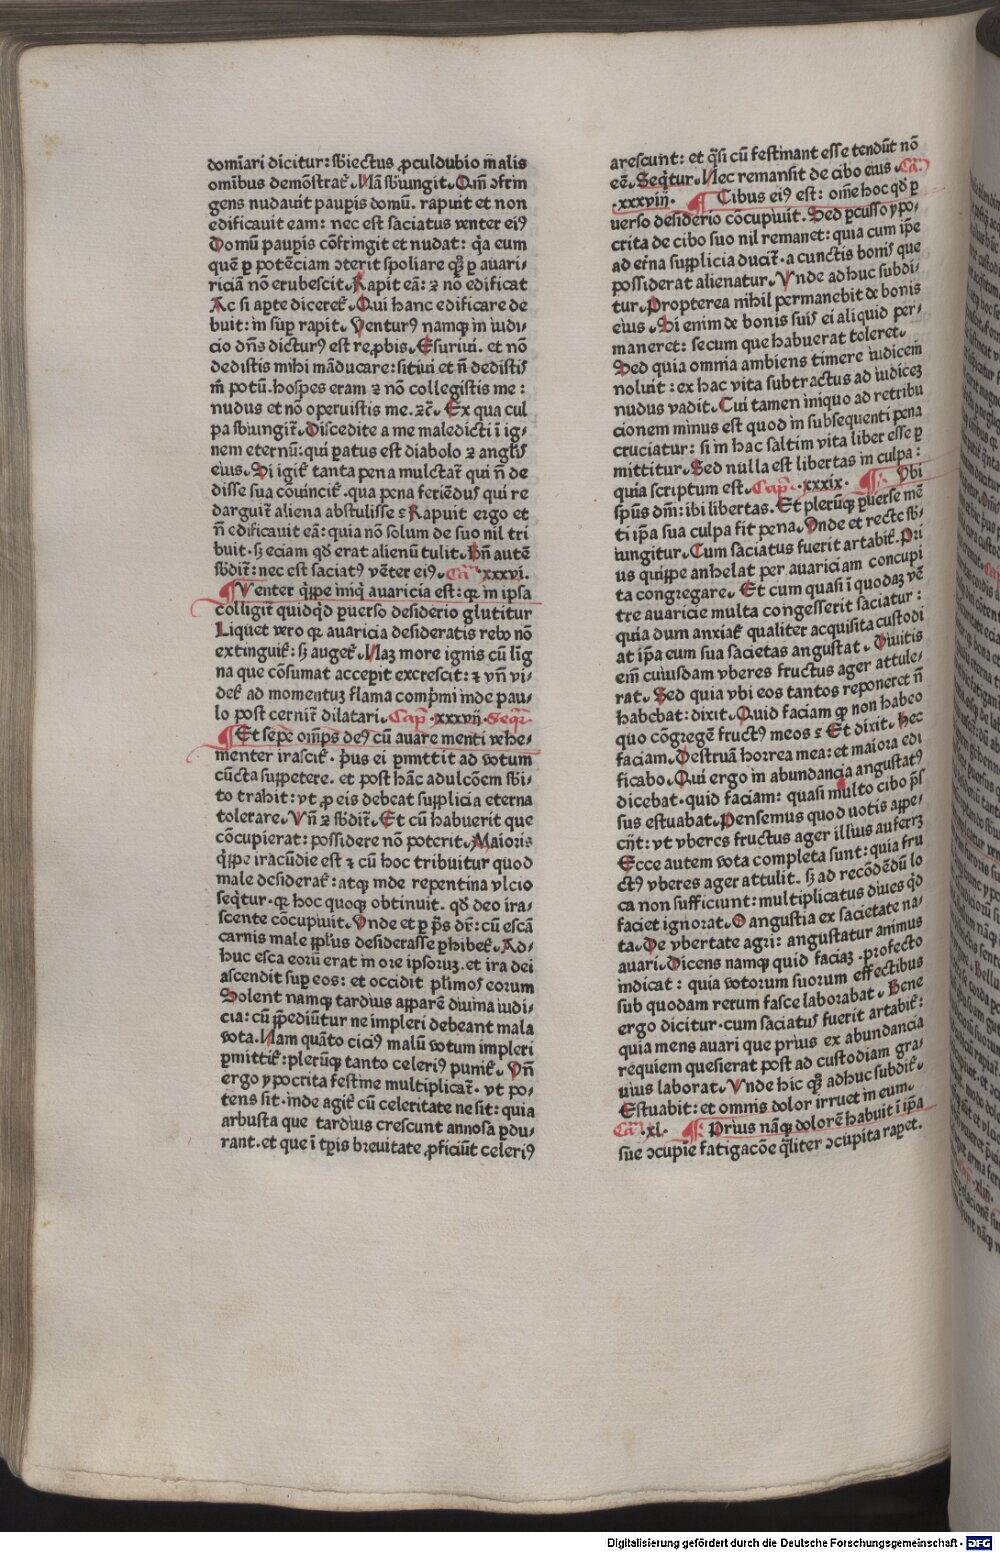 domīari dicitur: sbiectus ꝓculdubio malis
omībus demōstrat᷒. Nā sbiungit. Qm̄ ↄfrin
gens nudauit paupis domū. rapuit et non
edificauit eam: nec est saciatus venter ei⁹
Domū paupis cōfringit et nudat: qa eum
quē ꝑ potēciam ↄterit spoliare qꝫ ꝑ auari⸗
riciā nō erubescit. Rapit eā: ⁊ nō edificat
Ac si apte diceret᷒. Qui hanc edificare de
buit: insuꝑ rapit. Ventur⁹ namqꝫ in iudi⸗
cio dn̄s dictur⁹ est reꝓbis. Esuriui. et nō
dedistis mihi māducare: sitiui et n̄ dedistis
m̄ potū. hospes eram ⁊ nō collegistis me:
nudus et nō operuistis me. ⁊c̄. Ex qua cul
pa sbiungit᷒. Discedite a me maledicti ī ig⸗
nem eternū: qui ꝑatus est diabolo ⁊ angl̓is
eius. Si igit᷒ tanta pena mulctat᷒ qui n̄ de
disse sua cōuincit᷒. qua pena feriēdus qui re
darguit᷒ aliena abstulisse ⁊ Rapuit ergo et
n̄ edificauit eā: quia nō solum de suo nil tri
buit. sꝫ eciam qd̓ erat alienū tulit. Bn̄ autē
sbdit᷒: nec est saciat⁹ vēter ei⁹. Ca᷒ .xxxvi.
¶ Venter qͥppe iniqͥ auaricia est: qꝫ in ipsa
colligit᷒ quidqͥd ꝑuerso desiderio glutitur
Liquet vero qꝫ auaricia desideratis rebꝰ nō
extinguit᷒: sꝫ auget᷒. Naꝫ more ignis cū lig
na que cōsumat acceꝑit excrescit: ⁊ vn̄ vi⸗
det᷒ ad momentuꝫ flama comp̄mi inde pau⸗
lo post cernit᷒ dilatari. Cap̄ .xxxvij. Seqr̄
¶ Et sepe om̄ps de⁹ cū auare menti vehe⸗
menter irascit᷒. pͥus ei ꝑmittit ad votum
cūcta suppetere. et post hāc adulcōem sbi⸗
to trahit: vt ꝓ eis debeat supplicia eterna
tolerare. Vn̄ ⁊ sbdit᷒. Et cū habuerit que
cōcupierat: possidere nō poterit. Maioris
qͥppe iracūdie est ⁊ cū hoc tribuitur quod
male desiderat᷒: atqꝫ inde repentina vlcio
seqͥtur. qꝫ hoc quoqꝫ obtinuit. qd̓ deo ira⸗
scente cōcupiuit. Vnde et ꝑ p̄s dr̄: cū escā
carnis male pplus desiderasse ꝑhibet᷒. Ad⸗
huc esca eorū erat in ore ipsoruꝫ. et ira dei
ascendit suꝑ eos: et occidit pl̓imos eorum
Solent namqꝫ tardius apparē diuina iudi⸗
cia: cū p̄pediūtur ne impleri debeant mala
vota. Nam quāto cici⁹ malū votum impleri
ꝑmittit᷒: plerūqꝫ tanto celeri⁹ punit᷒. Vn̄
ergo ypocrita festine multiplicat᷒. vt po⸗
tens sit. inde agit᷒ cū celeritate ne sit: quia
arbusta que tardius crescunt annosa ꝑdu⸗
rant. et que ī tꝑis breuitate ꝓficiūt celeri⁹
arescunt: et qͣsi cū festinant esse tendūt nō
eē. Seqͥtur. Nec remansit de cibo eius. Ca᷒
.xxxviij. ¶ Cibus ei⁹ est: om̄e hoc qd̓ ꝑ
uerso desiderio cōcupiuit. Sed ꝑcusso ypo⸗
crita de cibo suo nil remanet: quia cum ip̄e
ad et̓na supplicia ducit᷒. a cunctis bonis que
possiderat alienatur. Vnde adhuc subdi⸗
tur. Propterea nihil permanebit de bonis
eius. Si enim de bonis suis ei aliquid per⸗
maneret: secum que habuerat toleret.
Sed quia omnia ambiens timere iudicem
noluit: ex hac vita subtractus ad iudiceꝫ
nudus vadit. Cui tamen iniquo ad retribu
cionem minus est quod in subsequenti pena
cruciatur: si in hac saltim vita liber esse ꝑ
mittitur. Sed nulla est libertas in culpa:
quia scriptum est. Cap̄ .xxxix. ¶ Vbi
spūs dn̄i: ibi libertas. Et plerūqꝫ ꝑuerse mē
ti ip̄a sua culpa fit pena. Vnde et recte sb⸗
iungitur. Cum saciatus fuerit artabit᷒. Pri
us quippe anhelat per auariciam concupi
ta congregare. Et cum quasi ī quodaꝫ vē
tre auaricie multa congesserit saciatur:
quia dum anxiat᷒ qualiter acquisita custodi
at ip̄a eum sua sacietas angustat. Diuitis
em̄ cuiusdam vberes fructus ager attule⸗
rat. Sed quia vbi eos tantos reponeret n̄
habebat: dixit. Quid faciam qꝫ non habeo
quo cōgregē fruct⁹ meos ⁊ Et dixit. hec
faciam. Destruā horrea mea: et maiora edi
ficabo. Qui ergo in abundancia angustat⁹
dicebat. quid faciam: quasi multo cibo p̄s
sus estuabat. Pensemus quod uotis appe⸗
cijt: vt vberes fructus ager illius auferrꝫ
Ecce autem vota completa sunt: quia fru
ct⁹ vberes ager attulit. sꝫ ad recōdēdū lo
ca non sufficiunt: multiplicatus diues qͥd
faciet ignorat. O angustia ex sacietate na⸗
ta. De vbertate agri: angustatur animus
auari. Dicens namqꝫ quid faciaꝫ. profecto
indicat: quia votorum suorum effectibus
sub quodam rerum fasce laborabat. Bene
ergo dicitur. cum saciatus fuerit artabit᷒:
quia mens auari que prius ex abundancia
requiem quesierat post ad custodiam gra⸗
uius laborat. Vnde hic qꝫ adhuc subdit᷒.
Estuabit: et omnis dolor irruet in eum.
Ca᷒ .xl. ¶ Prius nāqꝫ dolorē habuit ī ip̄a
sue ↄcupīe fatigacōe qͣliter ↄcupita rapet.
Digitalisierung gefördert durch die Deutsche Forschungsgemeinschaft - DFG